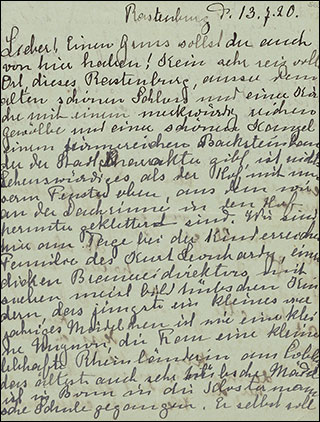 Rastenburg d. 13.7.20.
Lieber! Einen Gruss sollst du auch
von hier haben! Kein sehr reiz voll
Ort, dieses Rastenburg, ausser dem
alten schönen Schloss und einer Kir
che mit einem merkwürdig reichen
gewölbe und eine schöne Kanzel
einem turmreichen Backsteinbau
der gibt es nicht
Sehenswürdiges, als der Hof mit un
serm Fenster oben, aus dem wir
an der Dachrinne in den Hof
herunter geklettert sind. Wir sind
hier am Tage bei der Kinderreichen
Familie des Kurt Leonhardy, eines
dicken Brauereidirektors, mit
seinen meist bildhübschen Kin
dern, das jüngste ein kleines
jähriges Mädelchen ist wie eine klei
ne Mignon, die Frau eine kleine
lebhafte Rheinländerin aus Coblenz
das älteste auch sehr hübsche Mädel
ist in Bonn in die
sche Schule gegangen. Er selbst soll